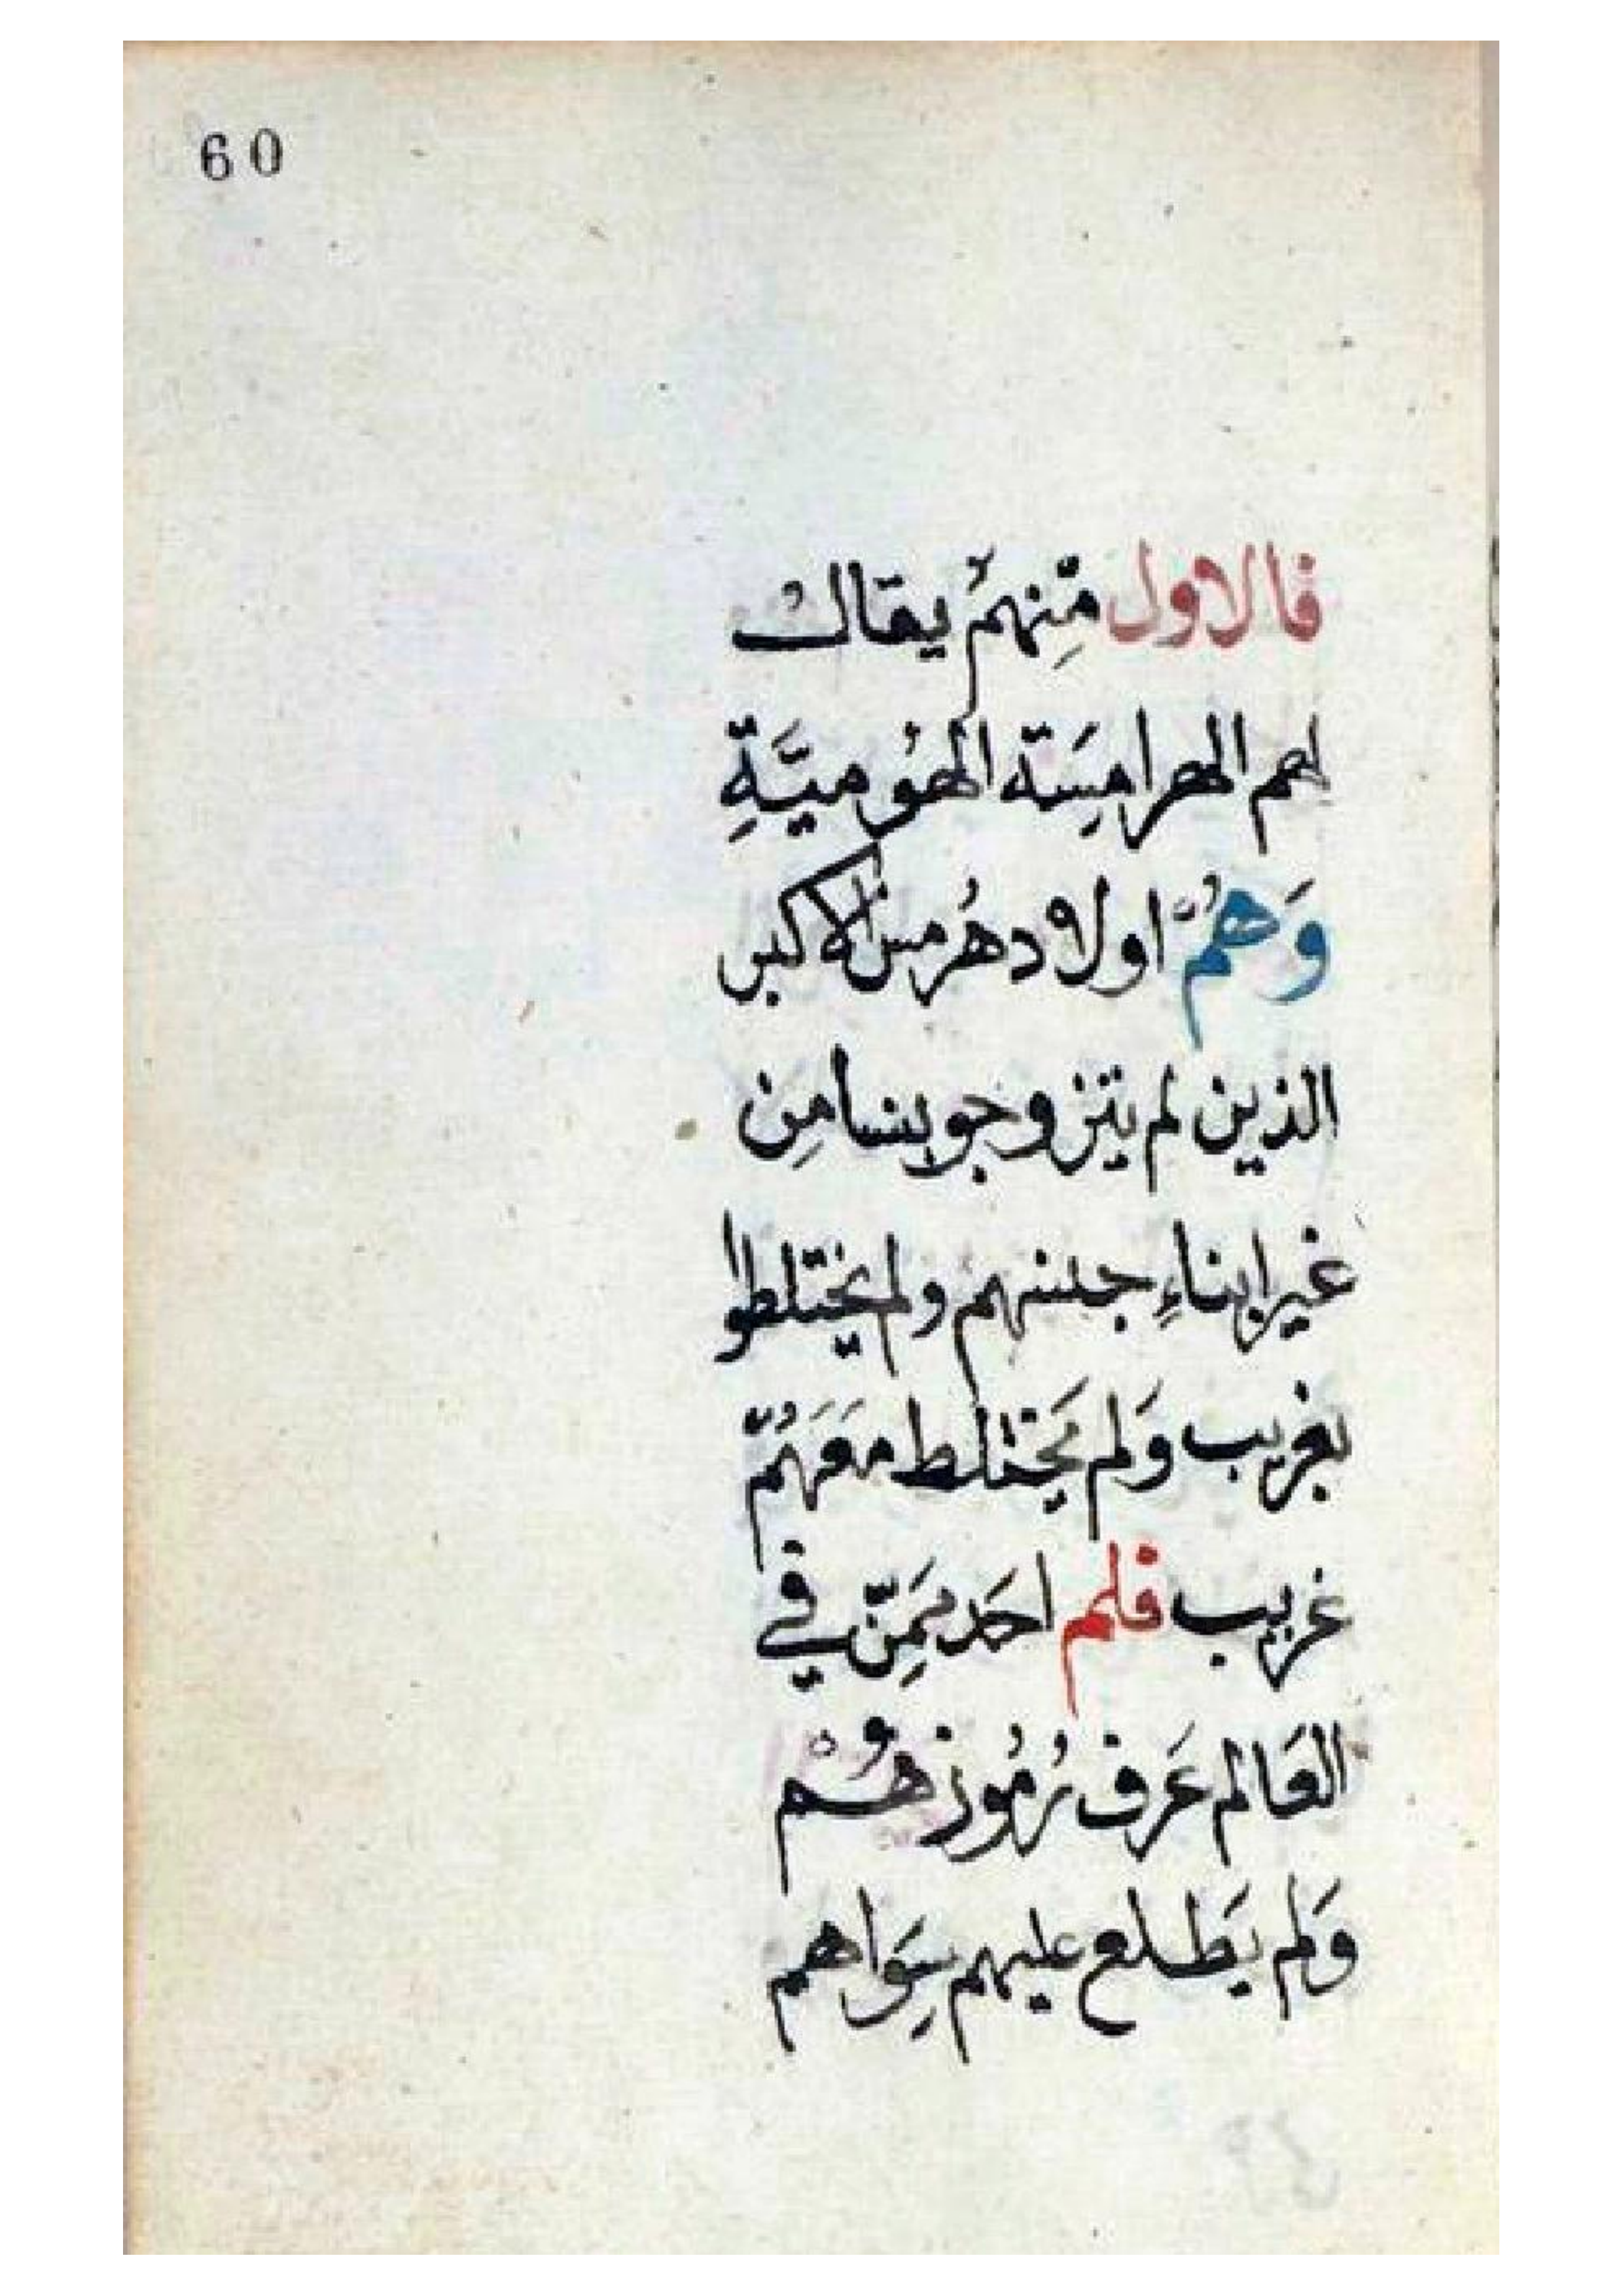 60
فالاول منهم يقال
لهم الهرامسة الهوميّة
وهم اولاد هرمس الاكبر
الذين لم يتزوجو بنسا من
غير ابناء جنسهم ولم يختلطوا
بغريب ولم يختلط معهم
غريب فلم احد ممن في
العالم عرف رموزهم
ولم يطلع عليهم سواهم